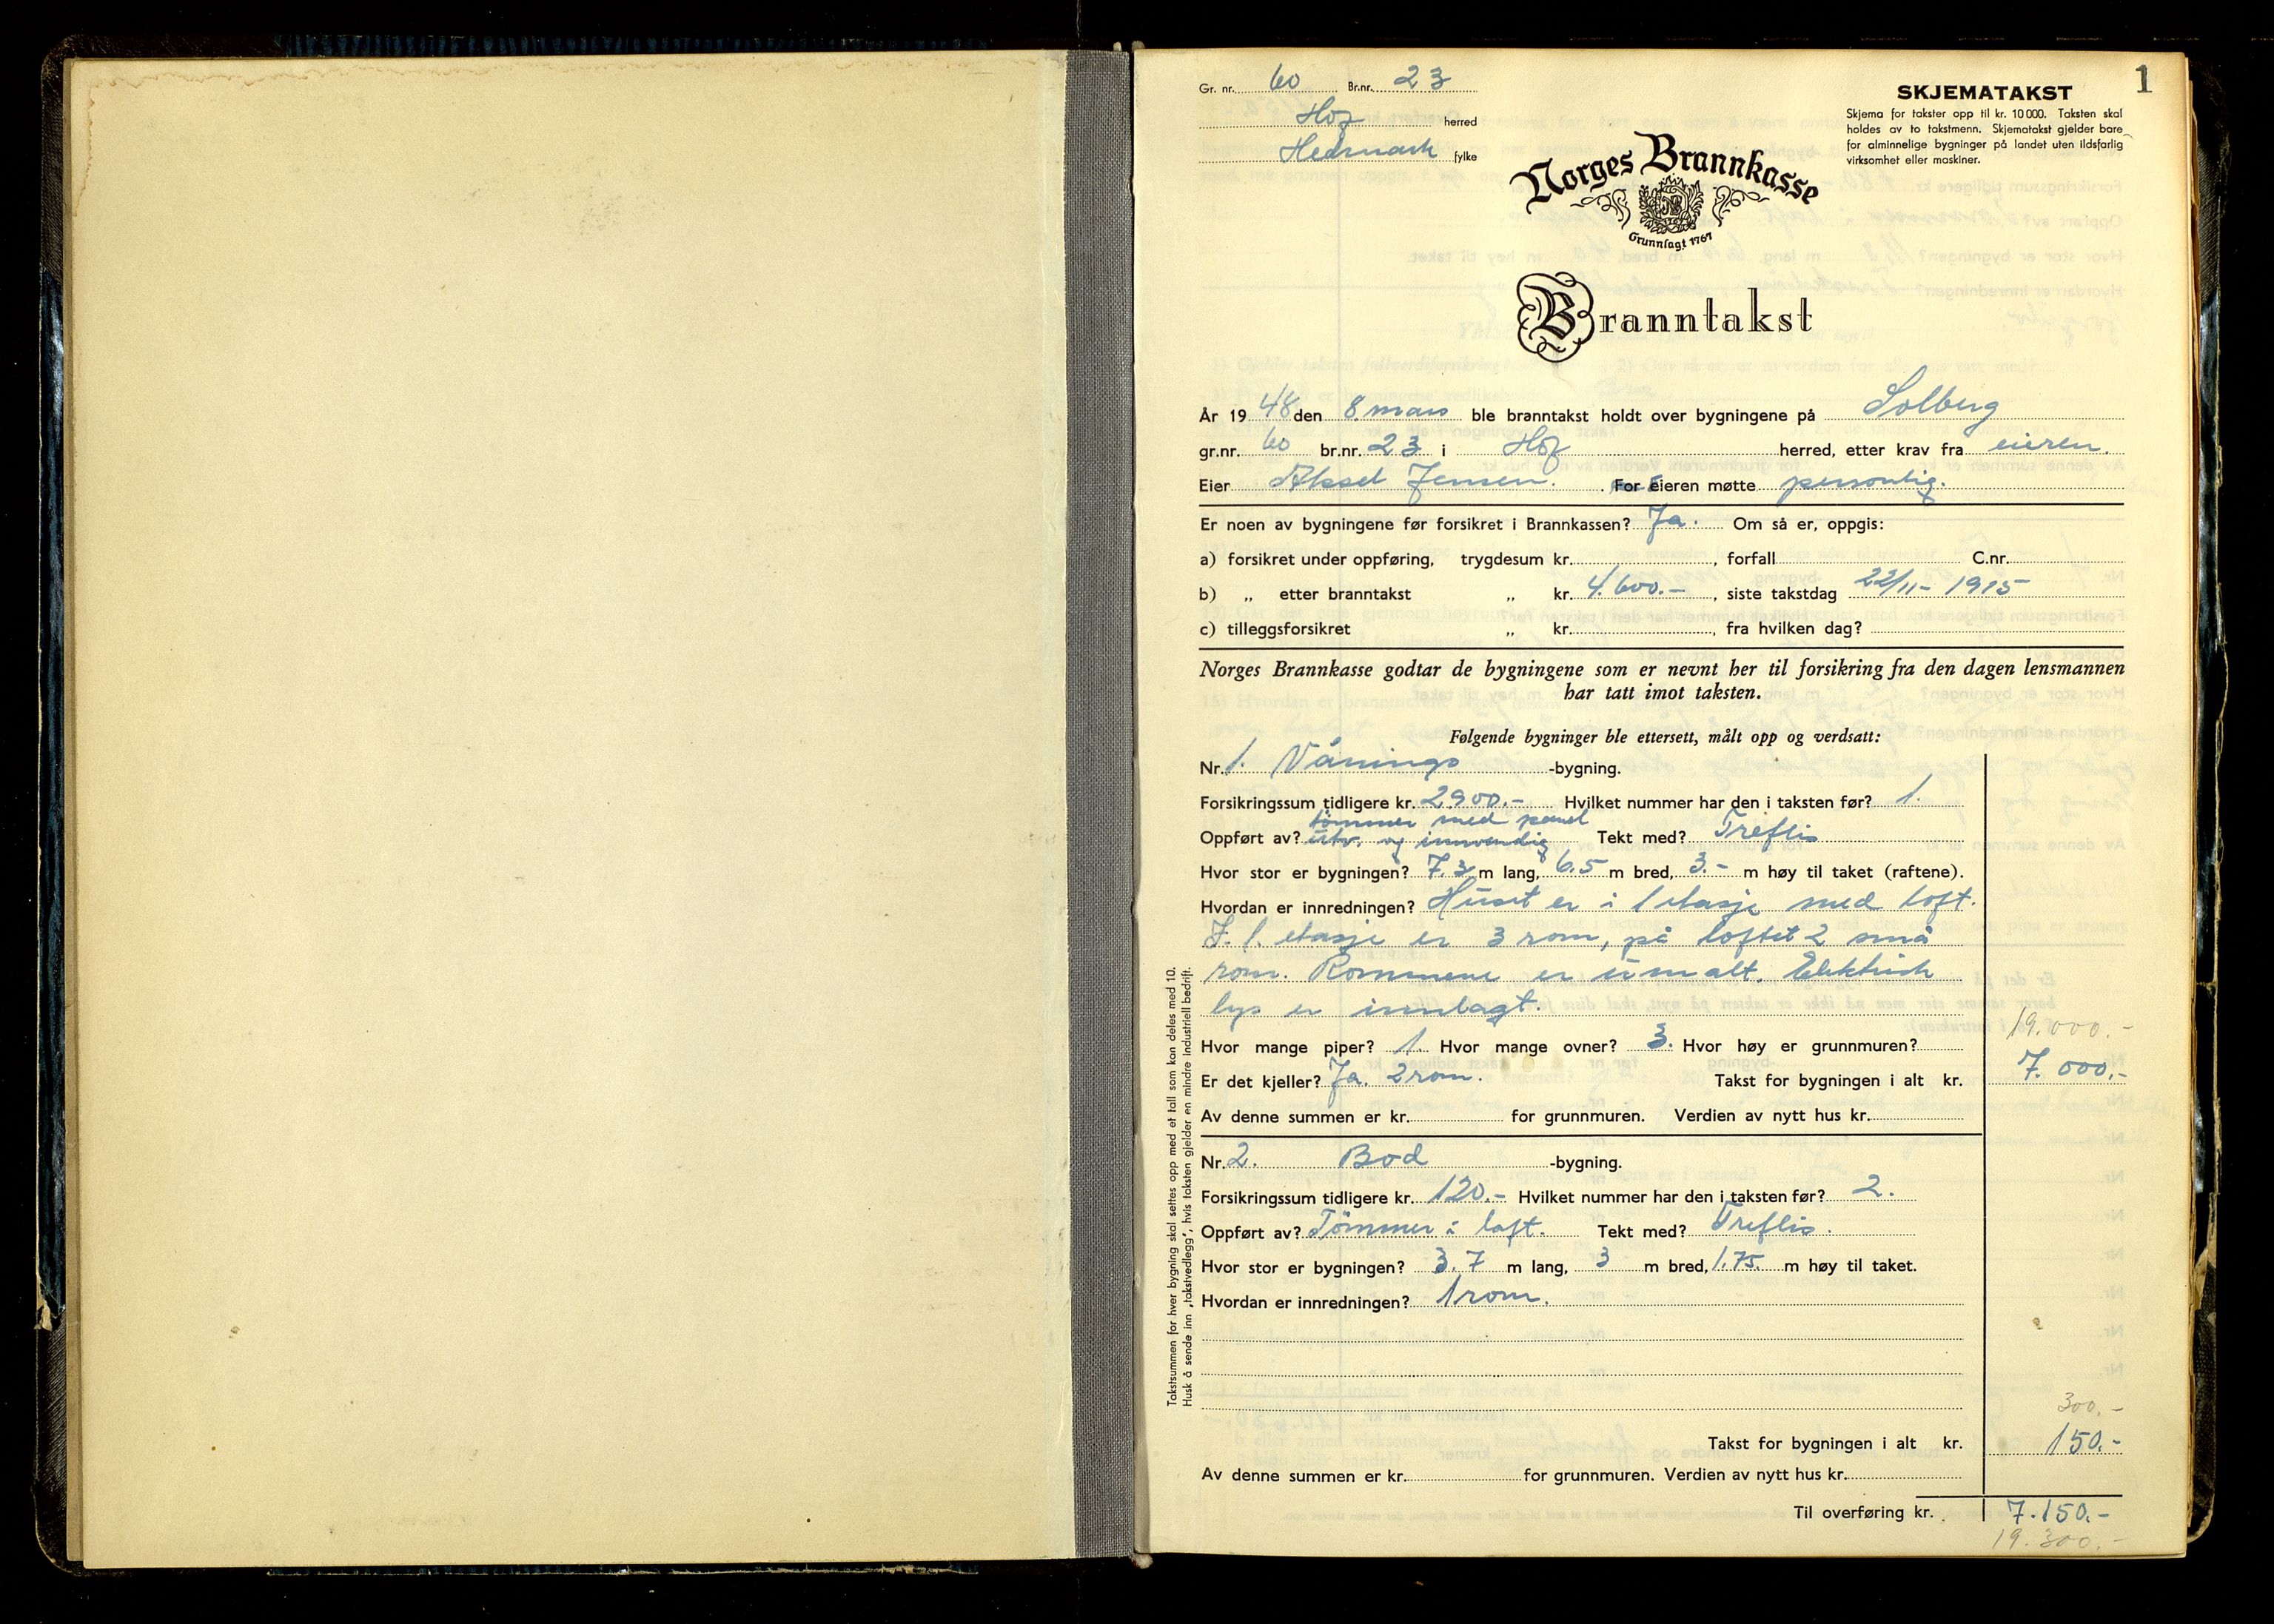 1
Gr. nr. 60 Br.nr. 23
Hof herred
Hedmark fylke
SKJEMATAKST
Skjema for takster opp til kr. 10 000. Taksten skal
holdes av to takstmenn. Skjematakst gjelder bare
for alminnelige bygninger på landet uten ildsfarlig
virksomhet eller maskiner.
Norges Brannkasse
Grunnlagt 1767
Branntakst
År 19 48 den 8 mars ble branntakst holdt over bygningene på Solberg
gr.nr. 60 br.nr. 23 i Hof herred, etter krav fra eieren.
Eier Aksel Jensen. For eieren møtte personlig.
Er noen av bygningene før forsikret i Brannkassen? Ja. Om så er, oppgis:
a) forsikret under oppføring, trygdesum kr. , forfall C.nr.
b) „ etter branntakst „ kr. 4.600.- , siste takstdag 22/11- 1915
c) tilleggsforsikret „ kr. , fra hvilken dag?
Norges Brannkasse godtar de bygningene som er nevnt her til forsikring fra den dagen lensmannen
har tatt imot taksten.
Følgende bygninger ble ettersett, målt opp og verdsatt:
Nr. 1. Vånings -bygning.
Forsikringssum tidligere kr. 2900.- Hvilket nummer har den i taksten før? 1.
tömmer med panel
Oppført av? utv. og innvendig Tekt med? Treflis
Hvor stor er bygningen? 7.3 m lang, 6.5 m bred, 3.- m høy til taket (raftene).
Hvordan er innredningen? Huset er i 1 etasje med loft.
I. 1. etasje er 3 rom, på loftet 2 små
rom. Rommene er umalt. Elektrisk
lys er innlagt.
19.000.-
Hvor mange piper? 1. Hvor mange ovner? 3. Hvor høy er grunnmuren?
Er det kjeller? Ja. 2 rom. Takst for bygningen i alt kr. 7.000.-
Av denne summen er kr. for grunnmuren. Verdien av nytt hus kr.
Nr. 2. Bod -bygning.
Forsikringssum tidligere kr. 120.- Hvilket nummer har den i taksten før? 2.
Oppført av? Tömmer i laft. Tekt med? Treflis.
Hvor stor er bygningen? 3.7 m lang, 3 m bred, 1.75. m høy til taket.
Hvordan er innredningen? 1 rom.
300.-
Takst for bygningen i alt kr. 150.-
Av denne summen er kr. for grunnmuren. Verdien av nytt hus kr.
Til overføring kr. 7.150.-
19.300.-
Takstsummen for hver bygning skal settes opp med et tall som kan deles med 10.
Husk å sende inn „takstvedlegg", hvis taksten gjelder en mindre industriell bedrift.